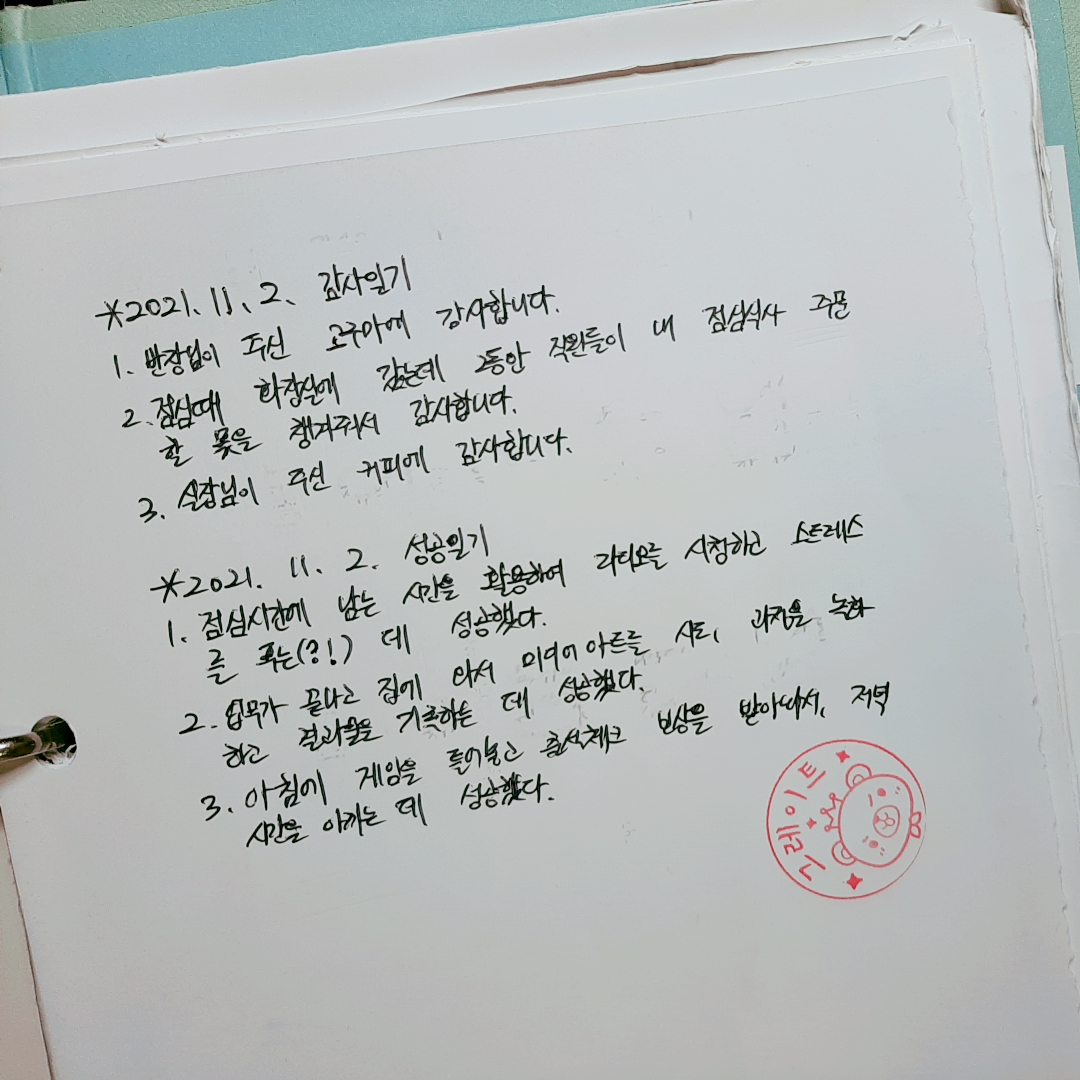 *2021. 11. 2. 감사일기
1. 반장님이 주신 고구마에 감사합니다.
2. 점심때 화장실에 갔는데 2동안 직원들이 내 점심식사 주문
할 몫을 챙겨줘서 감사합니다.
3. 실장님이 주신 커피에 감사합니다.
*2021. 11. 2. 성공일기
1. 점심시간에 남는 시간을 활용하여 라디오를 시청하고 스트레스
를 푸는(?!) 데 성공했다.
2. 업무가 끝나고 집에 와서 미디어아트를 시도, 과정을 녹화
하고 결과물을 기록하는 데 성공했다.
3. 아침에 게임을 틀어놓고 출석체크 보상을 받아놔서, 저녁
시간을 아끼는 데 성공했다.
그레이트